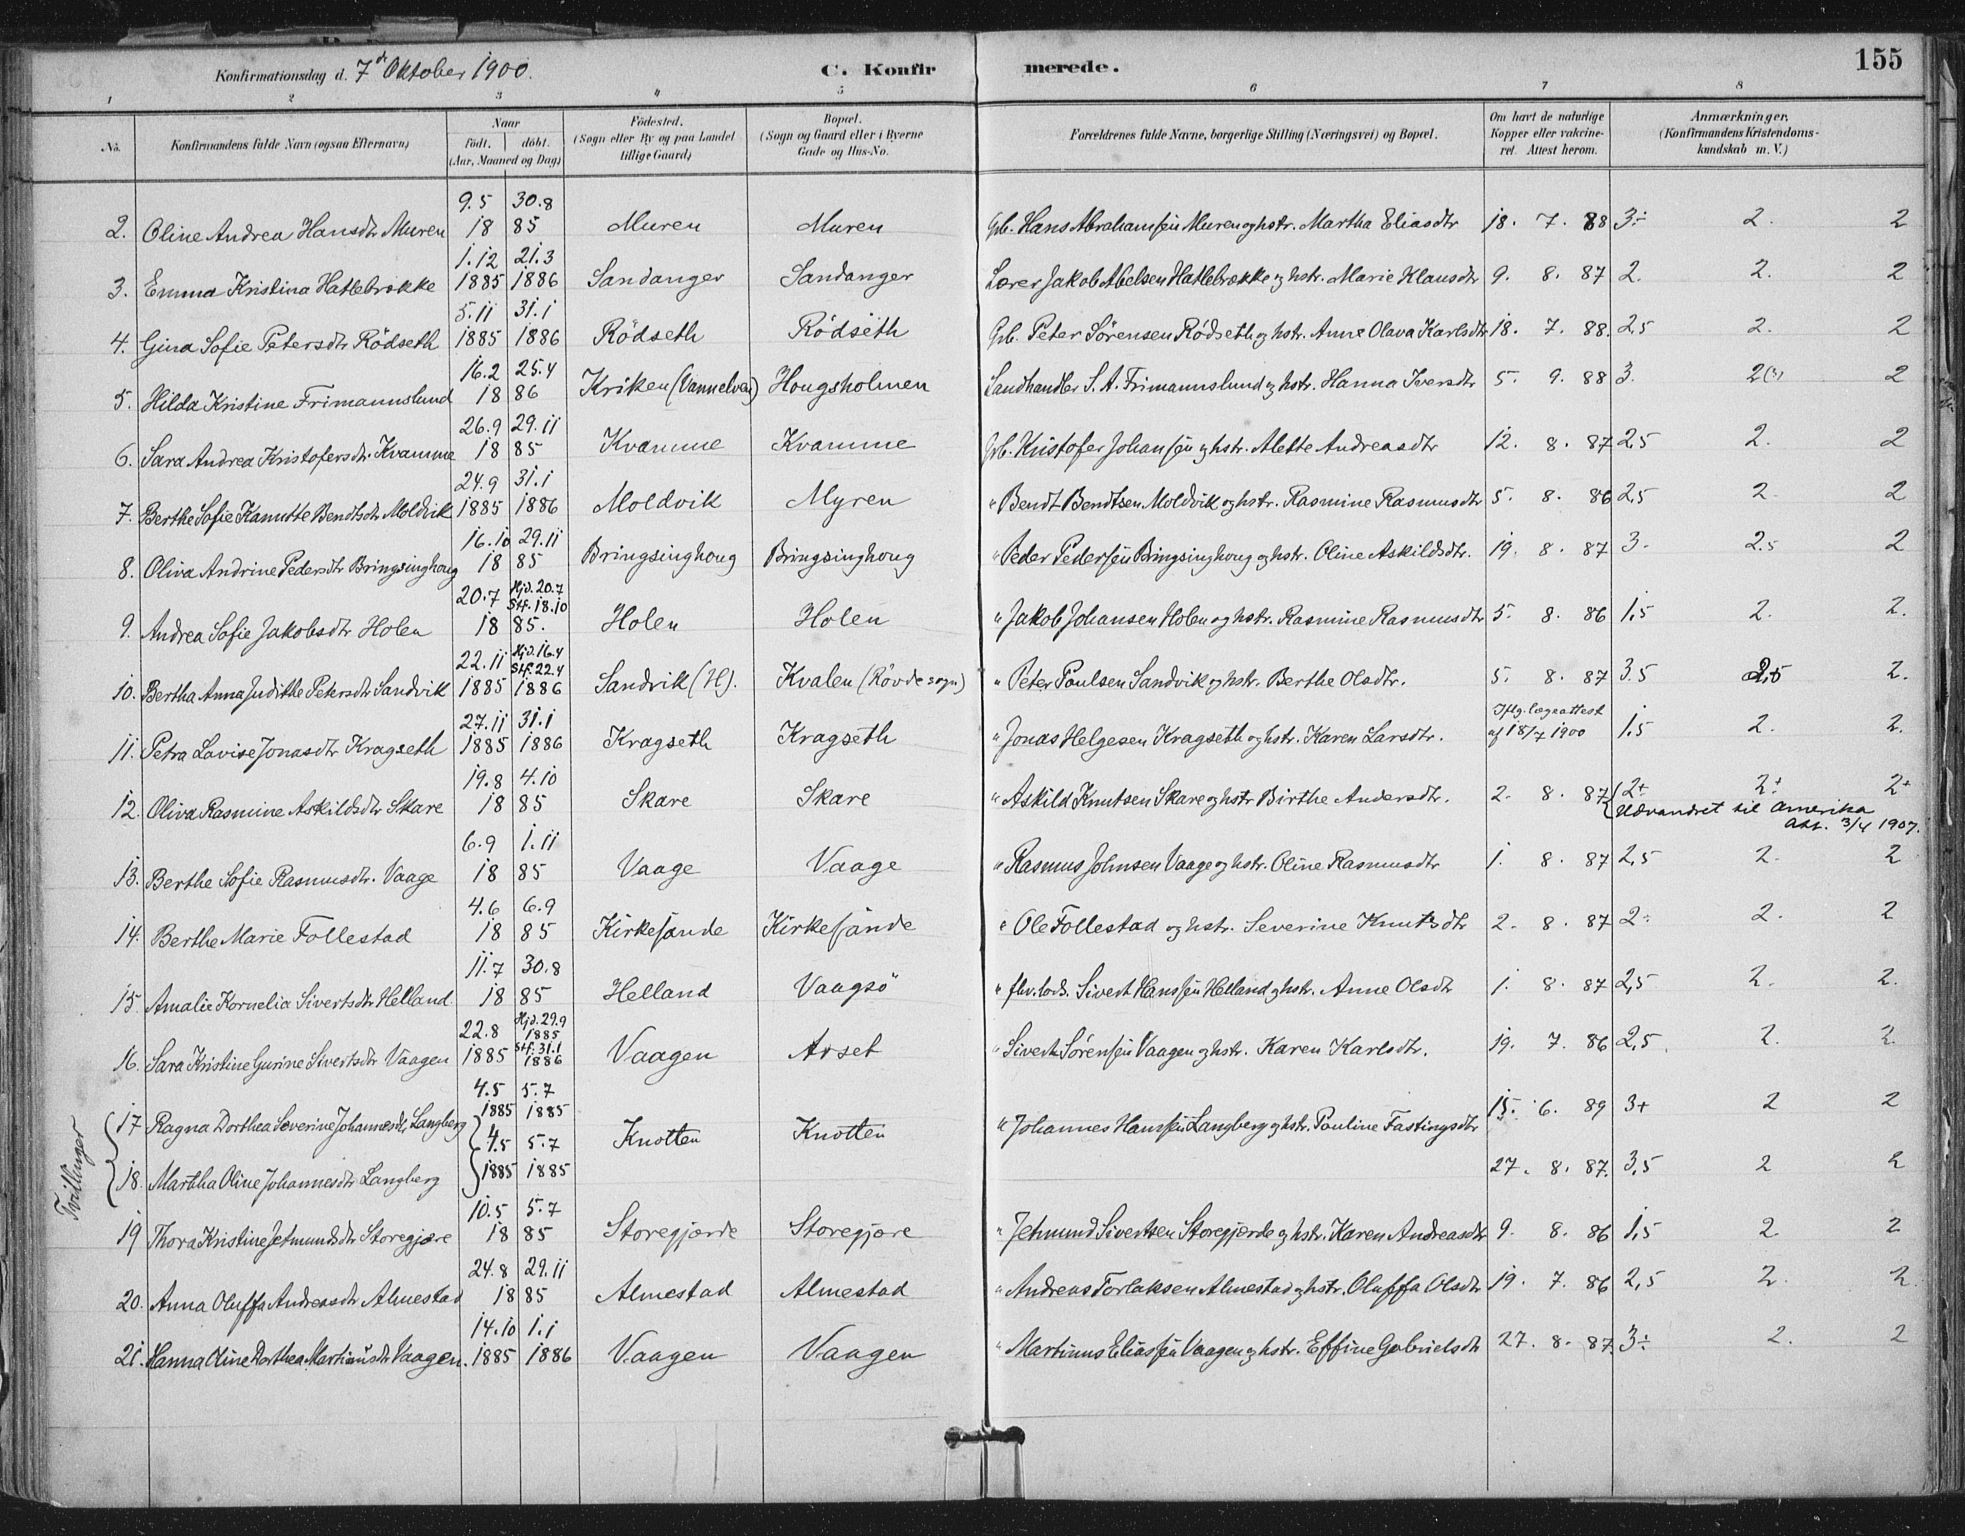 Konfirmationsdag d. 7de Oktober 1900. C. Konfirmerede. 155
1 2 3 4 5 6 7 8
No. Konfirmandens fulde Navn (ogsaa Efternavn) Naar født. døbt. (Aar, Maaned og Dag) Fødested. (Sogn eller By og paa Landet tillige Gaard) Bopæl. (Sogn og Gaard eller i Byerne Gade og Hus-No. Forældrenes fulde Navne, borgerlige Stilling (Næringsvei) og Bopæl. Om havt de naturlige Kopper eller vakcineret. Attest herom. Anmærkninger. (Konfirmandens Kristendomskundskab m. V.)
9.5 30.8
2. Oline Andrea Hansdtr Muren 18 85 Muren Muren Gb. Hans Abrahamsen Muren og hstr. Martha Eliasdtr 18. 7. 88 3÷ 2. 2
1.12 21.3
3. Emma Kristina Hatlebrække 1885 1886 Sandanger Sandanger Lærer Jakob Abelsen Hatlebrække og hstr. Marie Klausdtr 9. 8. 87 2. 2. 2
5.11 31.1
4. Gina Sofie Petersdtr Rødseth 1885 1886 Rødseth Rødseth Gb. Peter Sørensen Rødseth og hstr. Anne Olava Karlsdtr 18. 7. 88. 2,5 2. 2
16.2 25.4
5. Hilda Kristine Frimannslund 18 86 Kriken (Vannelven) Hougsholmen Landhandler S. A. Frimannslund og hstr. Hanna Iversdtr 5. 9. 88 3. 2(3) 2
26.9 29.11
6. Sara Andrea Kristofersdtr. Kvamme 18 85 Kvamme Kvamme Gb. Kristofer Johansen og hstr. Alette Andreasdtr 12. 8. 87 2,5 2. 2
24.9 31.1
7. Berthe Sofie Kanutte Bendtsdtr Moldvik 1885 1886 Moldvik Myren " Bendt Bendtsen Moldvik og hstr. Rasmine Rasmusdtr 5. 8. 86 2,5 2. 2
16.10 29.11
8. Oliva Andrine Pedersdtr Bringsinghoug 18 85 Bringsinghoug Bringsinghoug " Peder Pedersen Bringsinghoug og hstr. Oline Askildsdtr. 19. 8. 87 3. 2.5 2
20.7 Hjd. 20.7 Stf. 18.10
9. Andrea Sofie Jakobsdtr Holen 18 85. Holen Holen " Jakob Johansen Holen og hstr. Rasmine Rasmusdtr 5. 8. 86 1,5 2. 2.
22.11 Hjd. 16.4 Stf. 22.4
10. Bertha Anna Judithe Petersdtr Sandvik 1885 1886 Sandvik (H). Kvalen (Røvde sogn) " Peter Poulsen Sandvik og hstr. Berthe Olsdtr. 5. 8. 87 3.5 2,5 2.
27.11 31.1 Iflg. lægeattest
11. Petra Lavise Jonasdtr Kragseth 1885 1886 Kragseth Kragseth " Jonas Helgesen Kragseth og hstr. Karen Larsdtr. af 18/7 1900 1,5 2. 2.
19.8 4.10
12. Oliva Rasmine Askildsdtr Skare 18 85 Skare Skare " Askild Knutsen Skare og hstr Birthe Andersdtr. 2. 8. 87 2+ 2+ 2+
Udvandret til Amerika
att. 3/4 1907.
6.9 1.11
13. Berthe Sofie Rasmusdtr. Vaage 18 85 Vaage Vaage " Rasmus Johnsen Vaage og hstr. Oline Rasmusdtr 1. 8. 87 2,5 2. 2
4.6 6.9
14. Berthe Marie Follestad 18 85 Kirkefjande Kirkefjande " Ole Follestad og hstr. Severine Knutsdtr 2. 8. 87 2÷ 2. 2
11.7 30.8
15. Amalie Kornelia Sivertsdtr Helland. 18 85 Helland Vaagsø " Sivert Hansen Helland og hstr. Anne Olsdtr 1. 8. 87 2,5 2. 2.
22.8 Hjd. 29.9 1885
16. Sara Kristine Gurine Sivertsdtr Vaagen 1885 Stf. 31.1 1886 Vaagen Aarset " Sivert Sørensen Vaagen og hstr. Karen Karlsdtr. 19. 7. 86 2,5. 2. 2.
4.5 5.7
Tvillinger
17 Ragna Dorthea Severine Johannesdtr Langberg 1885 1885 Knotten Knotten " Johannes Hansen Langberg og hstr. Pauline Fastingsdtr 15. 6. 89 3+ 2 2
4.5 5.7
18. Martha Oline Johannesdtr Langberg 1885 1885 27. 8. 87. 3,5 2 2
10.5 5.7
19 Thora Kristine Jetmundsdtr Storegjære 18 85 Storegjærde Storegjære " Jetmund Sivertsen Storegjærde og hstr. Karen Andreasdtr 9. 8. 86 1,5 2 2
24.8 29.11
20. Anna Oluffa Andreasdtr Almestad 18 85 Almestad Almestad " Andreas Torlaksen Almestad og hstr. Oluffa Olsdtr 19. 7. 86 2,5 2. 2
14.10 1.1
21. Hanna Oline Dorthea Martinusdtr Vaagen. 1885 1886 Vaagen Vaagen " Martinus Eliassen Vaagen og hstr. Effine Gabrielsdtr 27. 8. 87. 3÷ 2. 2